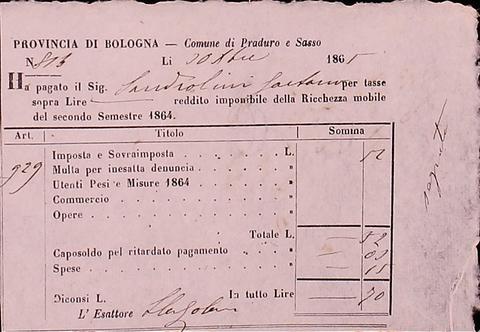 PROVINCIA DI BOLOGNA — Comune di Praduro e Sasso
N. 816 Li 1865
Ha pagato il Sig. Sandrolini Gaetano per tasse
sopra Lire — reddito imponibile della Ricchezza mobile
del secondo Semestre 1864.
Art. Titolo Somma
929 Imposta e Sovraimposta . . . . . . . L. 52
Multa per inesatta denuncia . . . . . . "
Utenti Pesi e Misure 1864 . . . . . . . "
Commercio . . . . . . . "
Opere . . . . . . . "
Totale L. — 52
Caposoldo pel ritardato pagamento . . . . " — 03
Spese . . . . . . . " — 15
Diconsi L. In tutto Lire — 70
L' Esattore